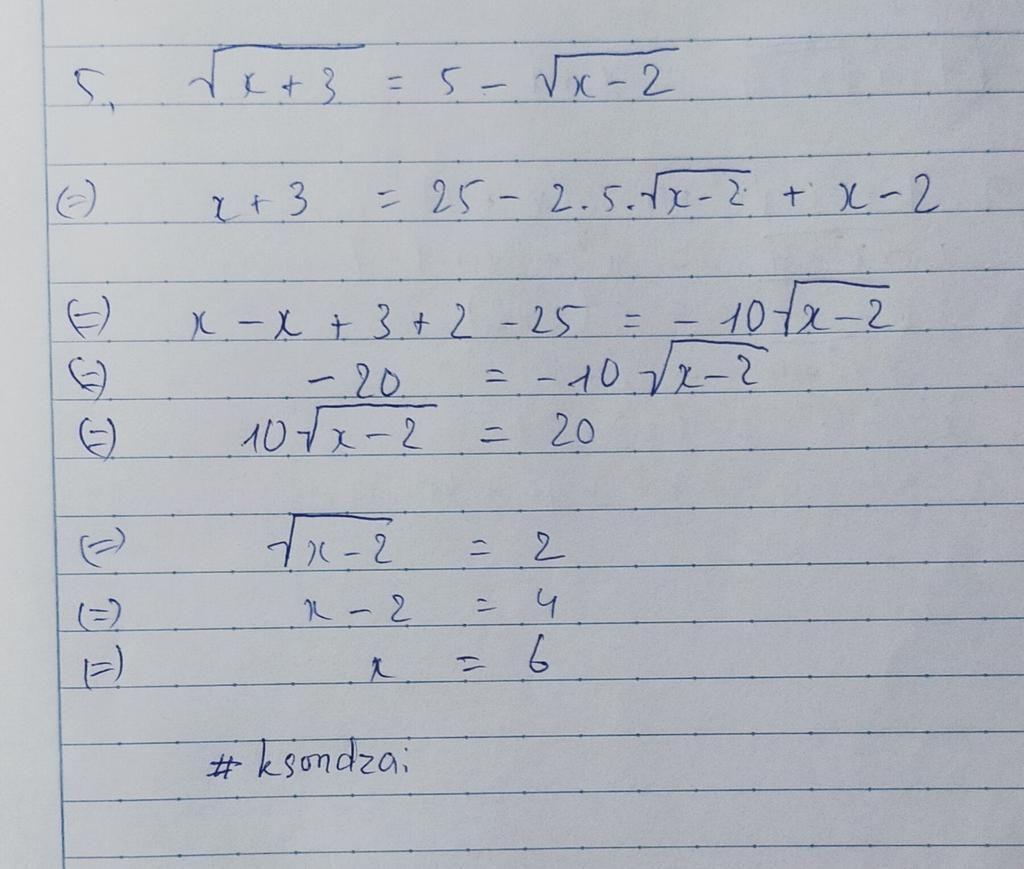 5, √(x+3) = 5 - √(x-2)
(=) x + 3 = 25 - 2.5.√(x-2) + x - 2
(=) x - x + 3 + 2 - 25 = - 10√(x-2)
(=) - 20 = - 10 √(x-2)
(=) 10√(x-2) = 20
(=) √(x-2) = 2
(=) x - 2 = 4
(=) x = 6
# ksondzai